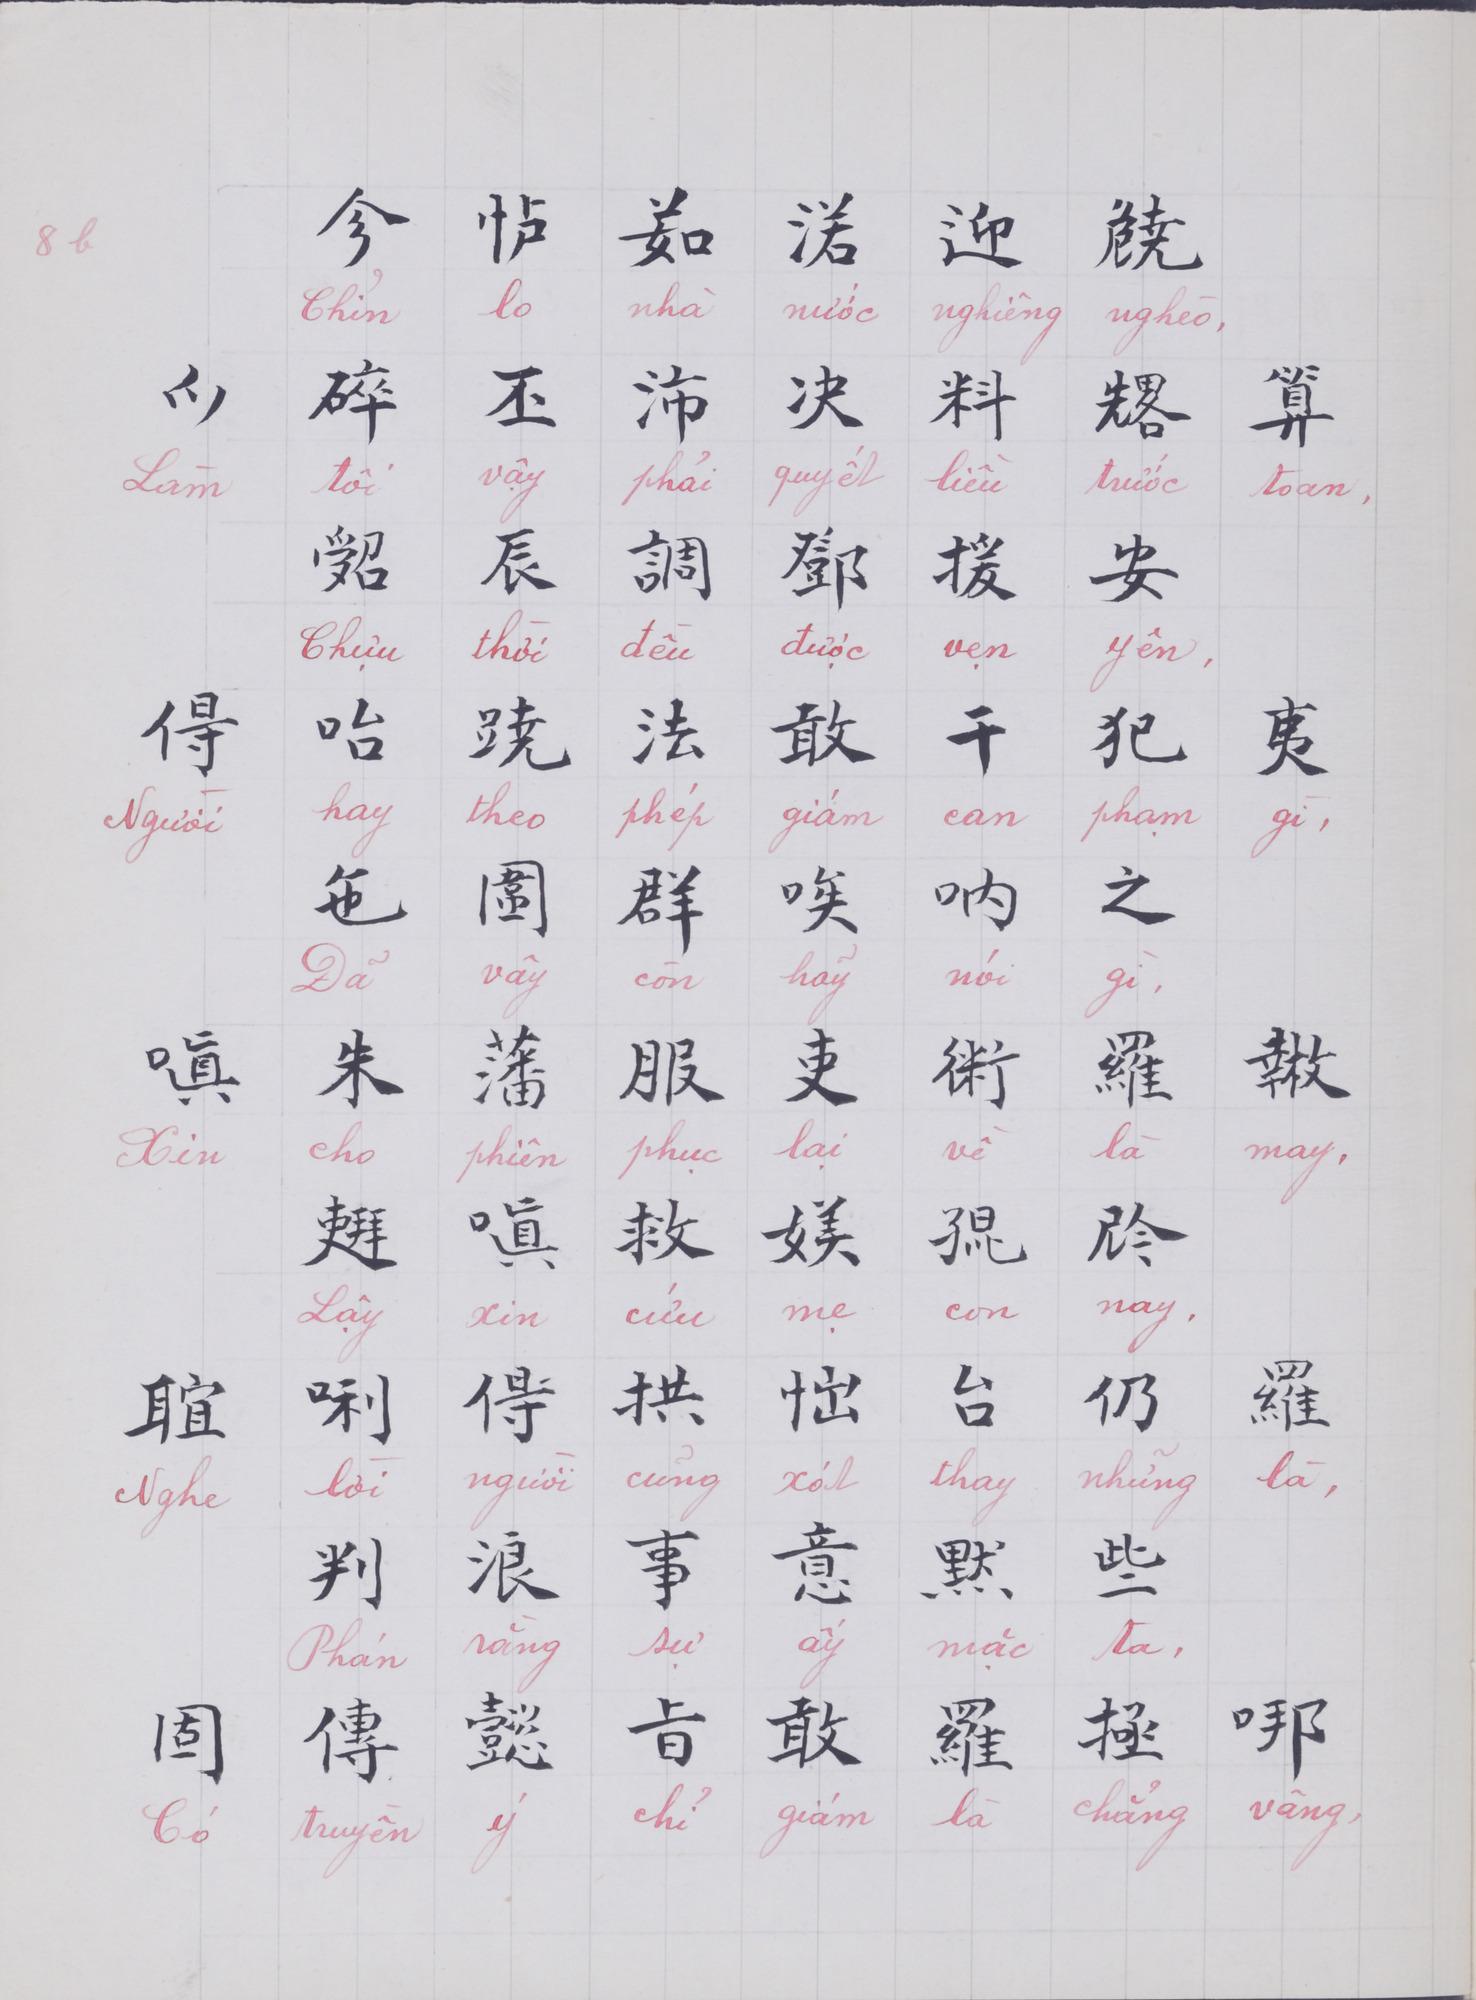 8b
今 𢗼 茹 渃 迎 𩪭
Chỉn lo nhà nước nghiêng nghèo,
碎 丕 沛 决 料 𠠩 算
Làm tôi vậy phải quyết liều trước toan,
辰 調 鄧 援 安
Chịu thời đều được vẹn yên,
㝵 咍 蹺 法 敢 干 犯 夷
Người hay theo phép giám can phạm gì,
㐌 圍 群 唉 吶 之
Đã vây còn hãy nói gì,
嗔 朱 藩 服 吏 術 羅
Xin cho phiên phục lại về là may,
嗔 救 媄 𡥵
Lậy xin cứu mẹ con nay,
唎 㝵 拱 怞 台 仍 羅
Nghe lời người cũng xót thay những là,
判 浪 事 意 默 些
Phán rằng sự ấy mặc ta,
固 傳 懿 旨 敢 羅 拯 哪
Có truyền ý chỉ giám là chẳng vâng,